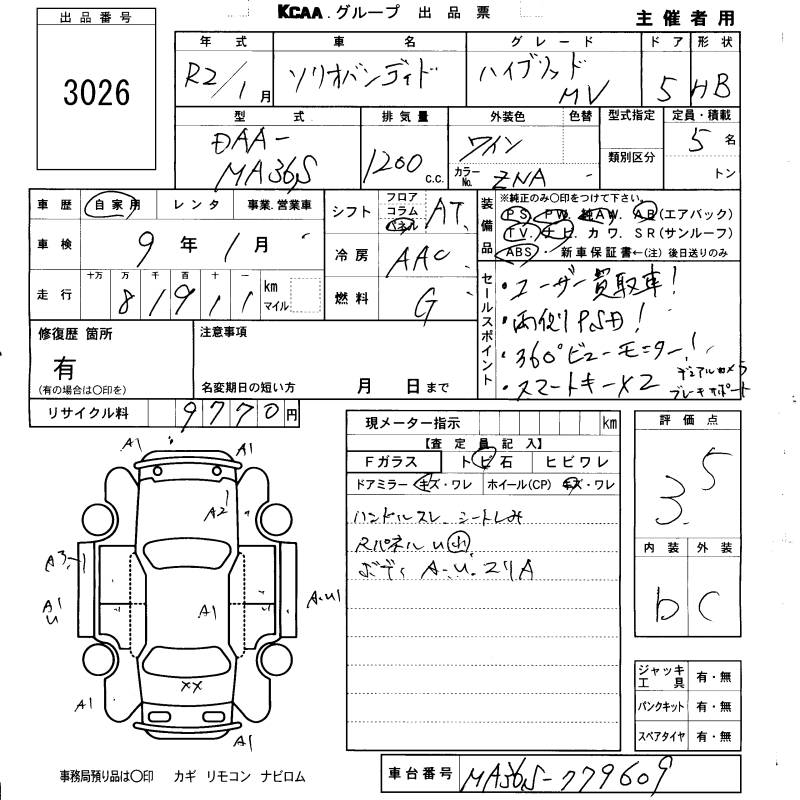 出品番号
3026
KCAA.グループ 出品票
主催者用
年式 車名 グレード ドア 形状
R2/1月 ソリオバンディド ハイブリッド MV 5 HB
型式 排気量 外装色 色替 型式指定 定員・積載
DAA-MA36S 1200 c.c. ワイン 5名
カラーNo. ZNA 類別区分 トン
車歴 自家用 レンタ 事業.営業車
シフト フロア コラム パネル AT
装備品 ※純正のみ〇印をつけて下さい。
PS PW 純AW. AB(エアバック)
TV. ナビ. カワ. SR(サンルーフ)
ABS・新車保証書←(注)後日送りのみ
車検 9年1月
冷房 AAC
走行 十万 万 千 百 十 一 km マイル
81911
燃料 G
セールスポイント
・ユーザー買取車!
・両側PSD!
・360°ビューモニター!
デュアルカメラ
・スマートキー×2 ブレーキサポート
修復歴 箇所
有
(有の場合は〇印を)
注意事項
名変期日の短い方 月 日まで
リサイクル料 9770円
現メーター指示 km
【査定員記入】
Fガラス トビ石 ヒビワレ
ドアミラー キズ・ワレ ホイール(CP) キズ・ワレ
ハンドルスレ シートしみ
Rパネルu小
ボディ A.U.スリA
評価点
3.5
内装 外装
b C
A1 A1
A2
A3
A1
U
A1
A.U1
XX
A1
A1
ジャッキ工具 有・無
パンクキット 有・無
スペアタイヤ 有・無
事務局預り品は〇印 カギ リモコン ナビロム
車台番号 MA36S-779609